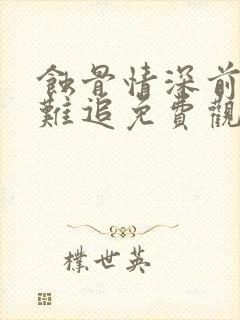 蝕骨情深前
難追免費觀
樸世英